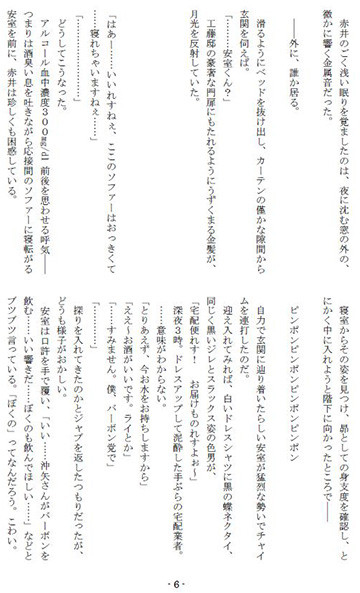 赤井のごく浅い眠りを覚ましたのは、夜に沈む窓の外の、
微かに響く金属音だった。
　――外に、誰か居る。
　滑るようにベッドを抜け出し、カーテンの僅かな隙間から
玄関を伺えば。
「……安室くん？」
　工藤邸の豪奢な門扉にもたれるようにうずくまる金髪が、
月光を反射していた。
「はあ――……いいれすねぇ、ここのソファーはおっきくて
……寝れちゃいますねぇ……」
「…………」
　どうしてこうなった。
　アルコール血中濃度３００mg/dl前後を思わせる呼気――
つまりは酒臭い息を吐きながら応接間のソファーに寝転がる
安室を前に、赤井は珍しくも困惑している。
　寝室からその姿を見つけ、昴としての身支度を確認し、と
にかく中に入れようと階下に向かったところで――
　ピンポンピンポンピンポンピンポン
　自力で玄関に辿り着いたらしい安室が猛烈な勢いでチャイ
ムを連打したのだ。
　迎え入れてみれば、白いドレスシャツに黒の蝶ネクタイ、
同じく黒いジレとスラックス姿の色男が、
「宅配便れす！　お届けものれすよぉ～」
　深夜３時。ドレスアップして泥酔した手ぶらの宅配業者。
　……意味がわからない。
「とりあえず、今お水をお持ちしますから」
「ええーお酒がいいです。ライとか」
「……すみません。僕、バーボン党で」
「…………」
　探りを入れてきたのかとジャブを返したつもりだったが、
どうも様子がおかしい。
　安室は口許を手で覆い、「いい……沖矢さんがバーボンを
飲む……いい響きだ……ぼくのも飲んでほしい……」などと
ブツブツ言っている。「ぼくの」ってなんだろう。こわい。
- 6 -